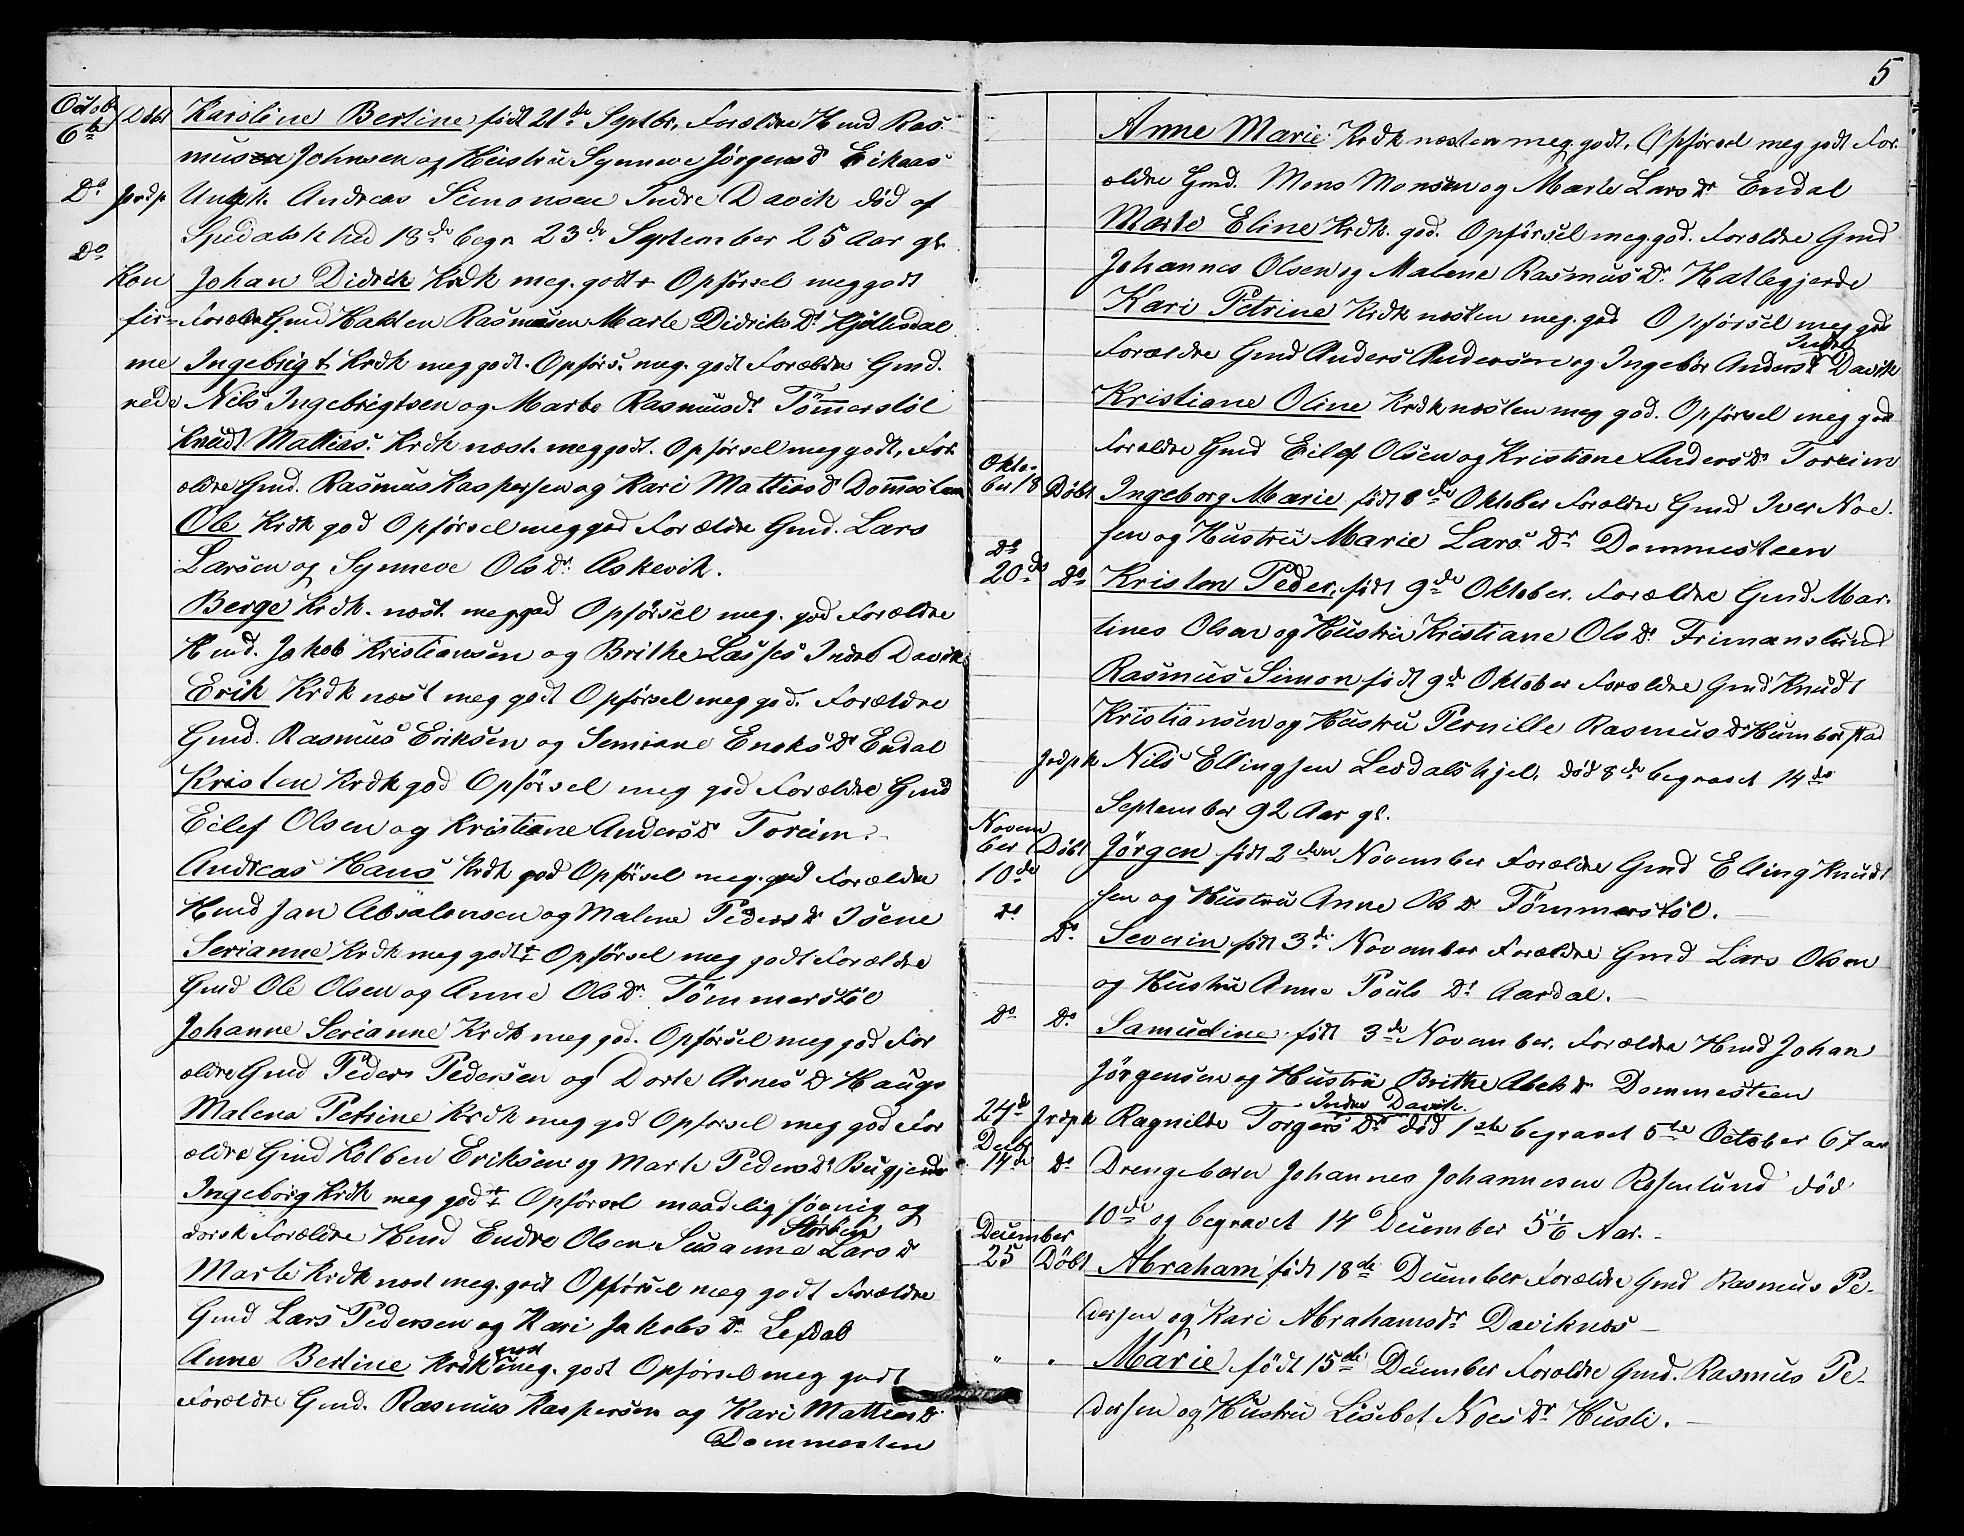 Octob. Döbt Karoline Bertine, födt 21de Septbr, Forældre Hmd Ras-
6te musen Johnsen og Hustru Synneve Jörgensdr Eikaas
Do Jordp. Ungk. Andreas Simonsen Indre Davik död af
Spedalskhed 18de begr 23de September 25 Aar gl.
Do
Kon Johan Didrik Krdk meg. godt Opförsel meg godt
fir= Forældre Gmd Halsten Rasmusen Marte Didriks Dr Hjellesdal
me Ingebrigt Krdk meg godt. Opförs. meg. godt Forældre Gmd.
rede Nils Ingebrigtsen og Marte Rasmusdr. Tömmerstöl
Knudt Mattias. Krdk næst. meg godt. Opförsel meg godt, For-
ældre Gmd. Rasmus Kaspersen og Kari Mattias dr Dommesteen
Ole Krdk god Opförsel meg god Forældre Gmd. Lars
Larsen og Synneve Ols Dr. Askevik.
Berge Krdk. næst. meg god Opförsel meg. god Forældre
Hmd. Jakob Kristiansen og Brithe Lasses Indre Davik
Erik Krdk næst meg godt Opförsel meg god. Forældre
Gmd. Rasmus Eriksen og Semiane Enoks Dr Endal
Kristen Krdk god Opförsel meg god Forældre Gmd
Eilef Olsen og Kristiane Anders dr Toreim.
Andreas Hans Krdk god Opförsel meg. god Forældre
Hmd Jan Absalonsen og Malene Peders dr Isene
Serianne Krdk meg godt Opförsel meg godt Forældre
Gmd Ole Olsen og Anne Ols Dr. Tömmerstöl
Johanne Serianne Krdk meg god. Opförsel meg god For
ældre Gmd Peder Pedersen og Dorte Arnes Dr Hauge
Malena Petrine Krdk meg god Opförsel meg god For
ældre Gmd Kolben Eriksen og Marte Peders Dr
Ingeborg Krdk meg godt Opförsel maadelig sövnig og
dorsk Forældre Hmd Endre Olsen Susanne Lars dr
Marte Krdk næst meg. godt Opförsel meg godt Forældre
Gmd Lars Pedersen og Kari Jakobs Dr. Lefdal
Anne Bertine Krdk næst meg. godt Opförsel meg godt
Forældre Gmd. Rasmus Kaspersen og Kari Mattias dr
Dommesten
5
Anne Marie Krdk næsten meg. godt. Opförsel meg godt For-
ældre Gmd. Mons Monsen og Marte Lars dr Endal
Marte Eline Krdk. god. Opförsel meg. god. Forældre Gmd
Johannes Olsen og Malene Rasmus Dr. Hatlegjerde
Kari Petrine Krdk næsten meg. god Opförsel meg god
Indre
Forældre Gmd Anders Andersen og Ingebor Anders dr Davik
Kristiane Oline Krdk næsten meg god. Opförsel meg god
Forældre Gmd Eilef Olsen og Kristiane Anders Dr Toreim
Okto-
ber 18 Döbt Ingeborg Marie, födt 8de Oktober Forældre Gmd Iver Noe-
sen og Hustru Marie Lars Dr Dommesteen
Do
20de Do Kristen Peder, födt 9de Oktober. Forældre Gmd Mar-
tines Olsen og Hustru Kristiane Ols Dr Frimanslund
Rasmus Simon födt 9de Oktober Forældre Gmd Knudt
Kristiansen og Hustru Pernille Rasmus dr Humborstad
Jordpk Nils Ellingsen död 8de begravet 14de
September 92 Aar gl.
Novem
ber Döbt Jörgen födt 2den November Forældre Gmd Elling Knudt
10de sen og Hustru Anne Ols Dr Tömmerstöl.
do
Do. Severin födt 3de November Forældre Gmd Lars Olsen
og Hustru Anne Pouls Dr Aardal.
Do Do. Samudine födt 3de November. Forældre Hmd Johan
Jörgensen og Hustru Brithe Abels dr Dommesteen
Indre Davik.
24de Jordpk Ragnilde Torgers Dr död 1ste begravet 5te October 67 aar
Decbr
14de Do Drengebarn Johannes Johannesen Rosenlund död
10de og begravet 14 December 5 1/6 Aar.
December
25 Döbt Abraham födt 18de December Forældre Gmd Rasmus Pe-
dersen og Kari Abrahamsdr Daviknes
" " Marie, födt 15de December Forældre Gmd. Rasmus Pe-
dersen og Hustru Lisebet Noes Dr Husli.